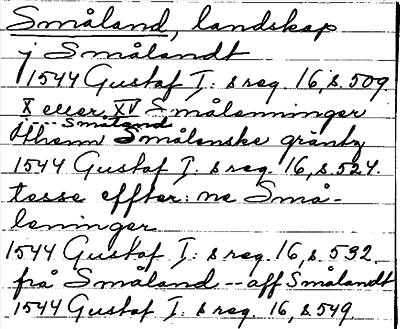 Småland, landskap
j Smålandt
1544 Gustaf I: s reg. 16, s. 509.
X eller XV Smålenninger
.... Småland
Hhem Smålenske gräntz
1544 Gustaf I: s reg. 16, s. 524.
tesse effter: ne Små-
leninger
1544 Gustaf I: s reg. 16, s. 532.
frå Småland -- aff Smålandt
1544 Gustaf I: s reg. 16, s. 549.